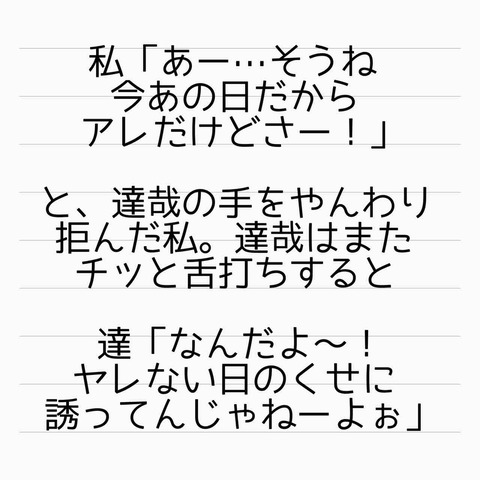 私「あー…そうね
今あの日だから
アレだけどさー！」
と、達哉の手をやんわり
拒んだ私。達哉はまた
チッと舌打ちすると
達「なんだよ〜！
ヤレない日のくせに
誘ってんじゃねーよぉ」